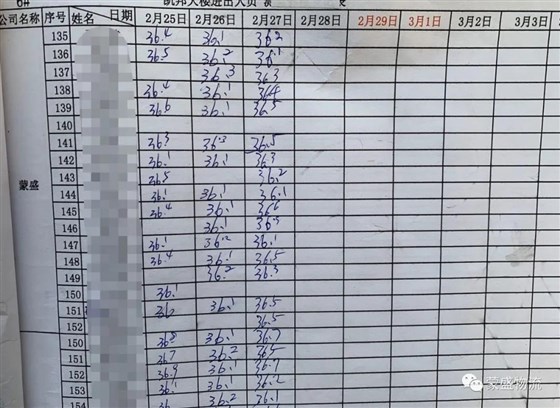 6# 凯邦大楼进出人员
公司名称 序号 姓名 日期 2月25日 2月26日 2月27日 2月28日 2月29日 3月1日 3月2日 3月3日
135 36.4 36.1 36.2
136 36.5 36.2 36.1
137 36.3 36.3
138 36.4 36.1 36.4
139 36.6 36.1 36.5
140
141 36.3 36.3 36.5
142 36.1 36.1 36.3
143 36.5 36.2
蒙盛
144 36.1 36.1 36.1
145 36.4 36.1 36.6
146 36.1 36.3
147 36.1 36.2 36.1
148 36.4 36.1 36.5
149 36.2 36.3
150 36.1
151 36.1 36.5
152 36.5
150 36.8 36.1 36.7
151 36.7 36.2 36.5
152 36.9 36.1 36.7
153 36.1 36.1 36.2
154 36.2 36.1
蒙盛物流